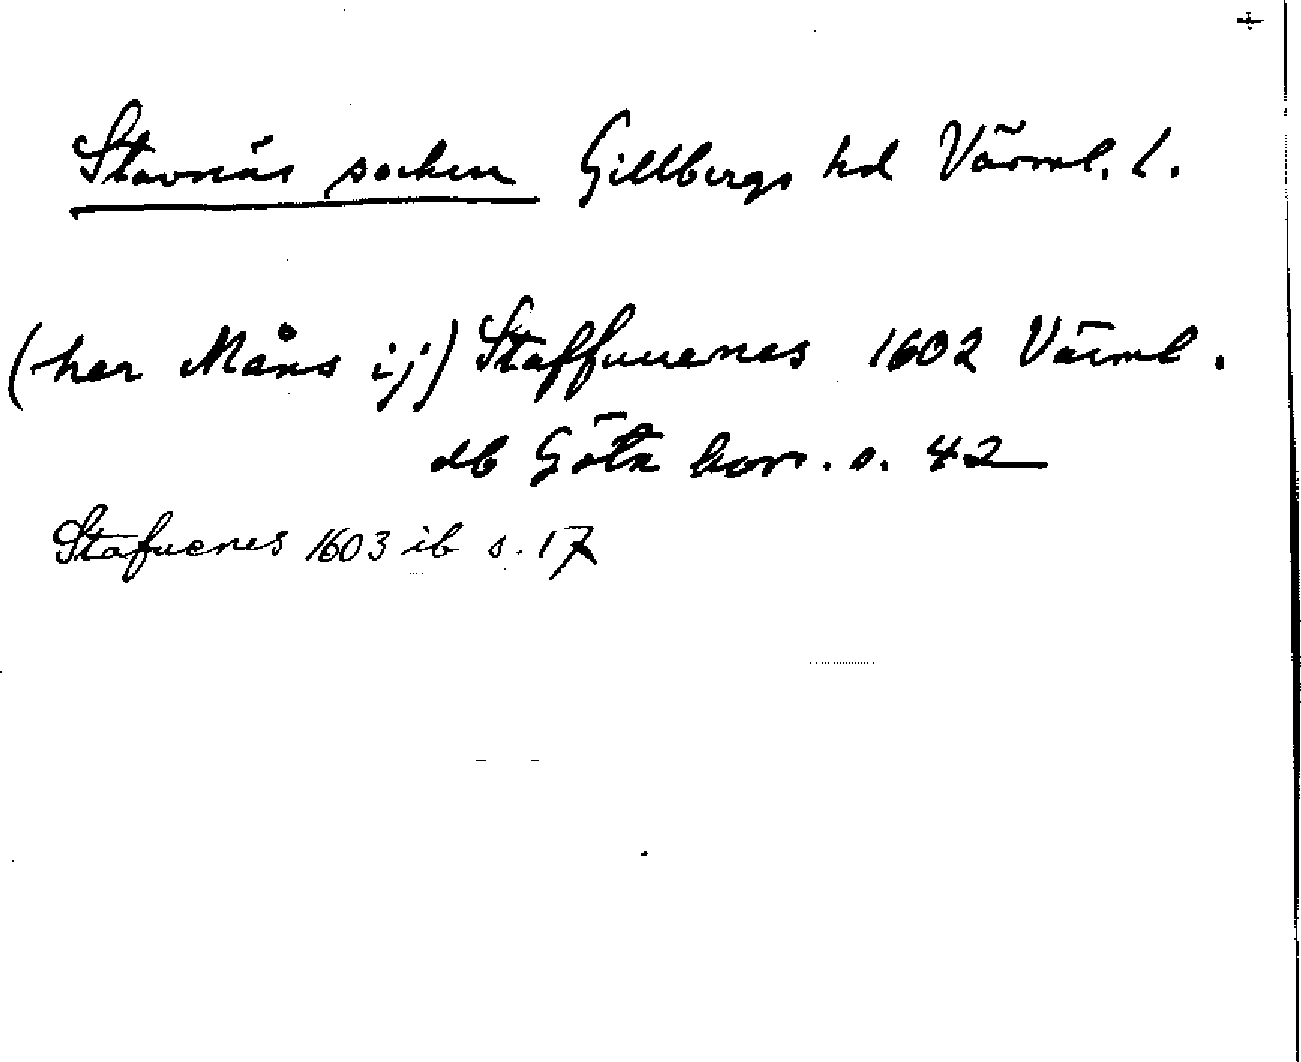 Stavnäs socken Gillbergs hd Värml. l.
(her Måns ij) Staffuuenes 1602 Värml.
db Göta hovr. s. 42
Stafuenes 1603 ib s. 17